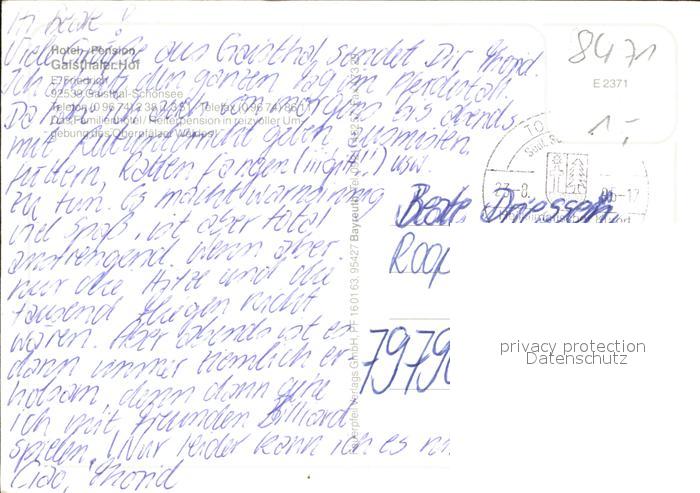 Hi Beate!
Viele Grüße aus Gaisthal sendet Dir Thorid.
Ich den ganzen Tag im Pferdestall.
Da morgens bis abends
mit Reitunterricht geben, ausmisten,
füttern, Ratten fangen (iiigitt!) usw.
zu tun. Es macht wahnsinnig
viel Spaß, ist aber total
anstrengend. Wenn aber
nur die Hitze und die
tausend Fliegen nicht
wären. Aber abends ist es
dann immer ziemlich er-
holsam, denn dann gehe
ich mit Freunden Billiard
spielen. Nur leider kann ich es
Ciao, Thorid
Hotel - Pension
Gaisthaler Hof
E. Friedrich
92539 Gaisthal-Schönsee
Telefon (0 96 74) 2 38 Telefax (0 96 74) 86
Das Familienhotel / Reiterpension in reizvoller Um-
gebung des Oberpfälzer Waldes!
Verlags GmbH, PF 16 01 63, 95427 Bayreuth
8471
E 2371
1,-
23.-8.
-17
Beate Driessen
79790
privacy protection
Datenschutz